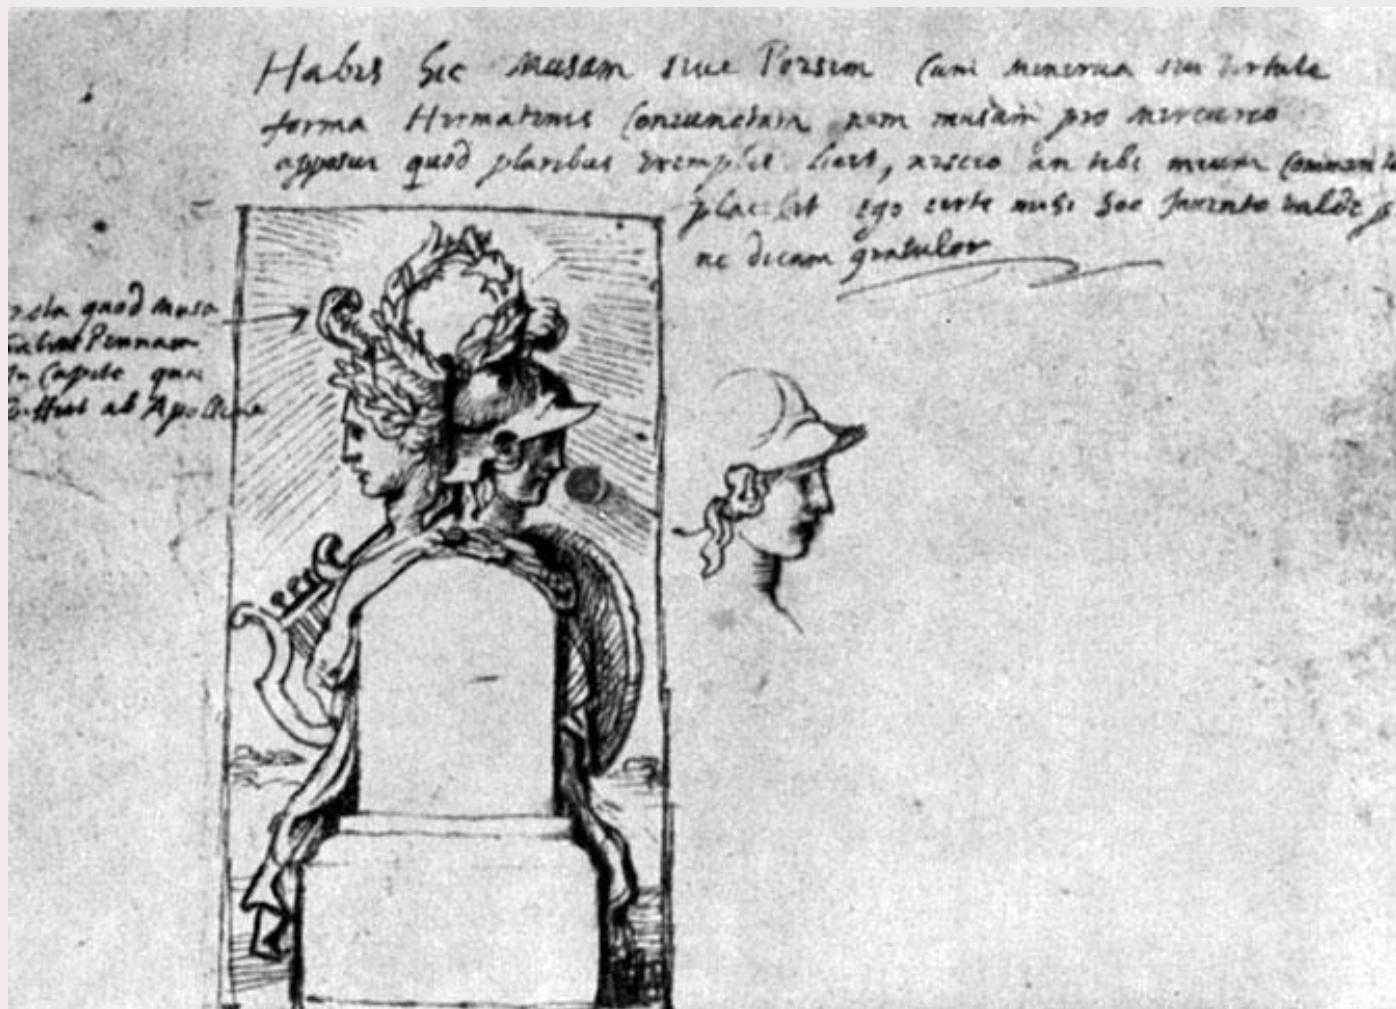 Habes hic Musam siue Poesim Cum minerua seu virtute
forma Hermatenis Coniunctam nam musam pro mercurio
apposui quod pluribus exemplis licet, nescio an tibi meum
placebit ego certe mihi hoc Inuento valde
ne dicam gratulor
quod musa
habeat Pennam
In Capite qua
differt ab Apolline